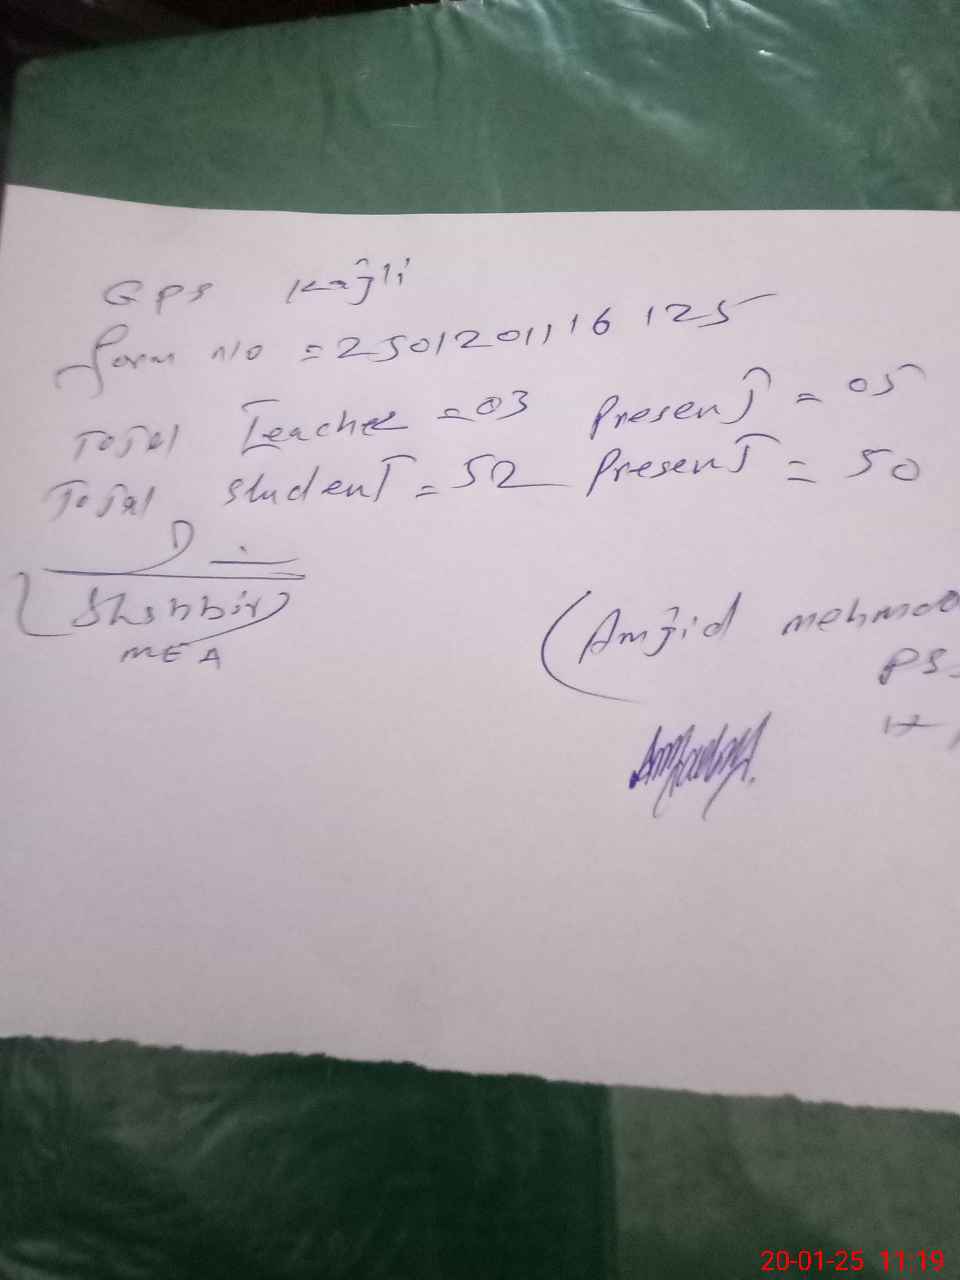 GPS Kajli
form no = 250120111 6 125
Total Teacher = 03 Present = 05
Total student = 52 Present = 50
(Shabbir)
MEA
(Amjid mehmoo
PS
20-01-25 11:19